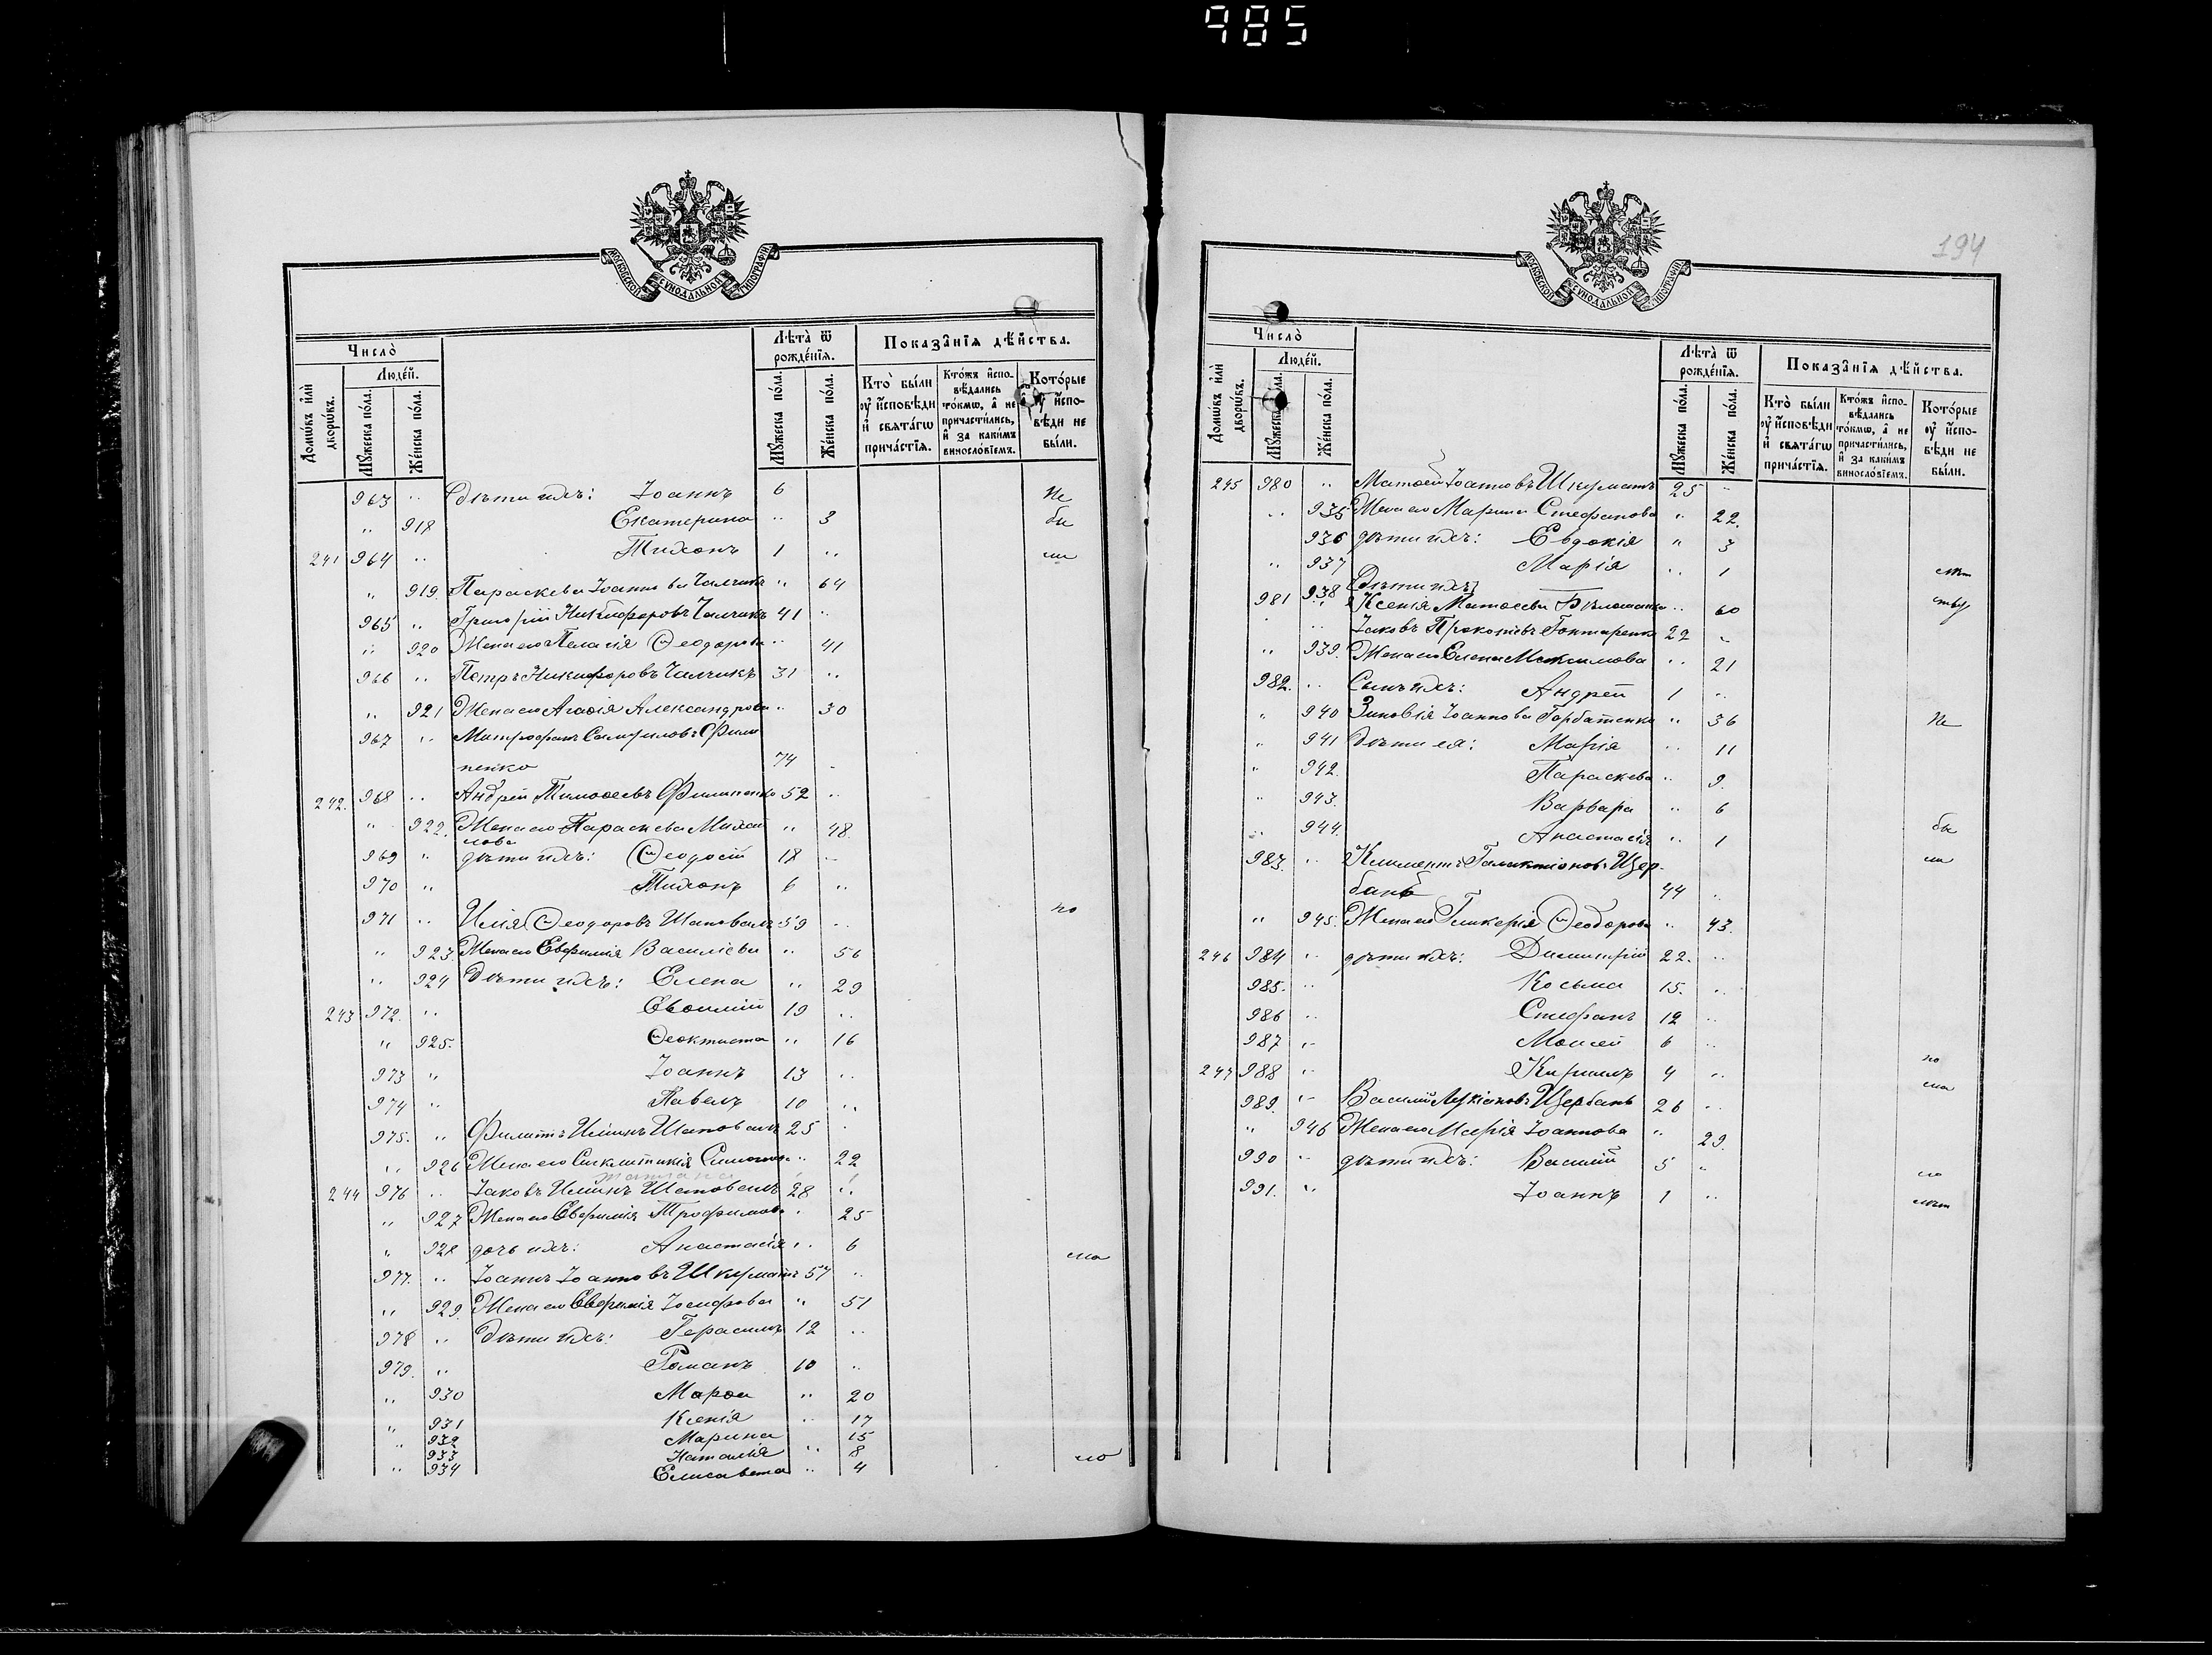 985
МОСКОВСКОЙ СѴНОДАЛЬНОЙ ТИПОГРАФІИ
Число̀
Людéй.
Домѡ́въ и҆лѝ дворѡ́въ.
Мꙋ́жеска по́ла.
Же́нска по́ла.
Лѣ́та ѿ рожде́нїѧ.
Мꙋ́жеска по́ла.
Же́нска по́ла.
Показа̑нїѧ дѣ́йства.
Кто̀ бы́ли оу҆ и҆́сповѣди и҆ свѧта́гѡ прича́стїѧ.
Кто́жъ и҆спо-вѣ́дались то́кмѡ, а҆ не причасти́лись, и҆ за каки́мъ винослове́мъ.
Кото́рые оу҆ и҆́спо-вѣди не бы́ли.
963 " дѣти ихъ: Іоаннъ 6 " Не
" 918 Екатерина " 3 бы
241 964 " Тихонъ 1 " ли
" 919. Параскева Іоаннова Чалчикъ " 64
965 " Григорій Никифоровъ Чалчикъ 41 "
" 920 Жена его Пелагія Ѳеодорова " 41
966 " Петръ Никифоровъ Чалчикъ 31 "
" 921 Жена его Агаѳія Александрова " 30
967 " Митрофанъ Фили
пенко 74 "
242. 968 " Андрей Тимоѳеевъ Филипенко 52 "
" 922. Жена его Параскева Михай
лова " 48.
969 " дѣти ихъ: Ѳеодосій 18 "
970 " Тихонъ 6 "
971 " Илія Ѳеодоровъ Шаповалъ 59 " по
" 923. Жена его Евфимія Василіева " 56
" 924 Дѣти ихъ: Елена " 29
243 972. " Евѳимій 19 "
" 925. Ѳеоктиста " 16
973 " Іоаннъ 13 "
974 " Павелъ 10 "
975. " Филиппъ Иліинъ Шаповалъ 25 "
" 926 Жена его Синклитикія " 22
244 976 " Іаковъ Иліинъ Шаповалъ 28 "
" 927 Жена его Евфимія Трофимова " 25
" 928 дочь ихъ: Анастасія " 6
977. " Іоаннъ Іоанновъ Шкуматъ 57 " ма
" 929. Жена его Евфимія Іосифова " 51
978 " Дѣти ихъ: Герасимъ 12 "
979. " Романъ 10 "
" 930 Марѳа " 20
" 931 Ксенія " 17
" 932 Марина 15
933 Наталія " 8
" 934 Елисавета " 4 ло
194
МОСКОВСКОЙ СѴНОДАЛЬНОЙ ТИПОГРАФІИ
Число̀
Людéй.
Домѡ́въ и҆лѝ дворѡ́въ.
Мꙋ́жеска по́ла.
Же́нска по́ла.
Лѣ́та ѿ рожде́нїѧ.
Мꙋ́жеска по́ла.
Же́нска по́ла.
Показа̑нїѧ дѣ́йства.
Кто̀ бы́ли оу҆ и҆́сповѣди и҆ свѧта́гѡ прича́стїѧ.
Кто́жъ и҆спо-вѣ́дались то́кмѡ, а҆ не причасти́лись, и҆ за каки́мъ винослове́мъ.
Кото́рые оу҆ и҆́спо-вѣди не бы́ли.
245 980 " Матѳей Іоанновъ Шкуматъ 25 "
" 935 Жена его Марина Стефанова " 22.
936 дѣти ихъ: Евдокія " 3
" 937 Марія " 1 лѣт
981 938 Дѣти ихъ
Ксенія Матѳеева " 60 ству
" Іаковъ Прокопіевъ Гонтаренко 22 "
" 939. Жена его Елена Максимова " 21
982. " Сынъ ихъ: Андрей 1 "
" 940 Зиновія Іоаннова Горбатенко " 36 Не
" 941 дѣти ея: Марія " 11
" 942. Параскева " 9.
" 943. Варвара " 6
" 944. Анастасія " 1 бы
983. " Климентъ Галактіоновъ Щер- ли
бань 44 "
" 945. Жена его Гликерія Ѳеодорова " 43.
246 984 " дѣти ихъ: Димитрій 22. "
985. " Косьма 15. "
986 " Стефанъ 12 "
987 " Моисей 6 "
247 988 " Кириллъ 4 " по
989. " Василій Щербань 26 " ма
" 946 Жена его Марія Іоаннова " 29.
990 " дѣти ихъ: Василій 5 " ло
991. " Іоаннъ 1 " лѣт